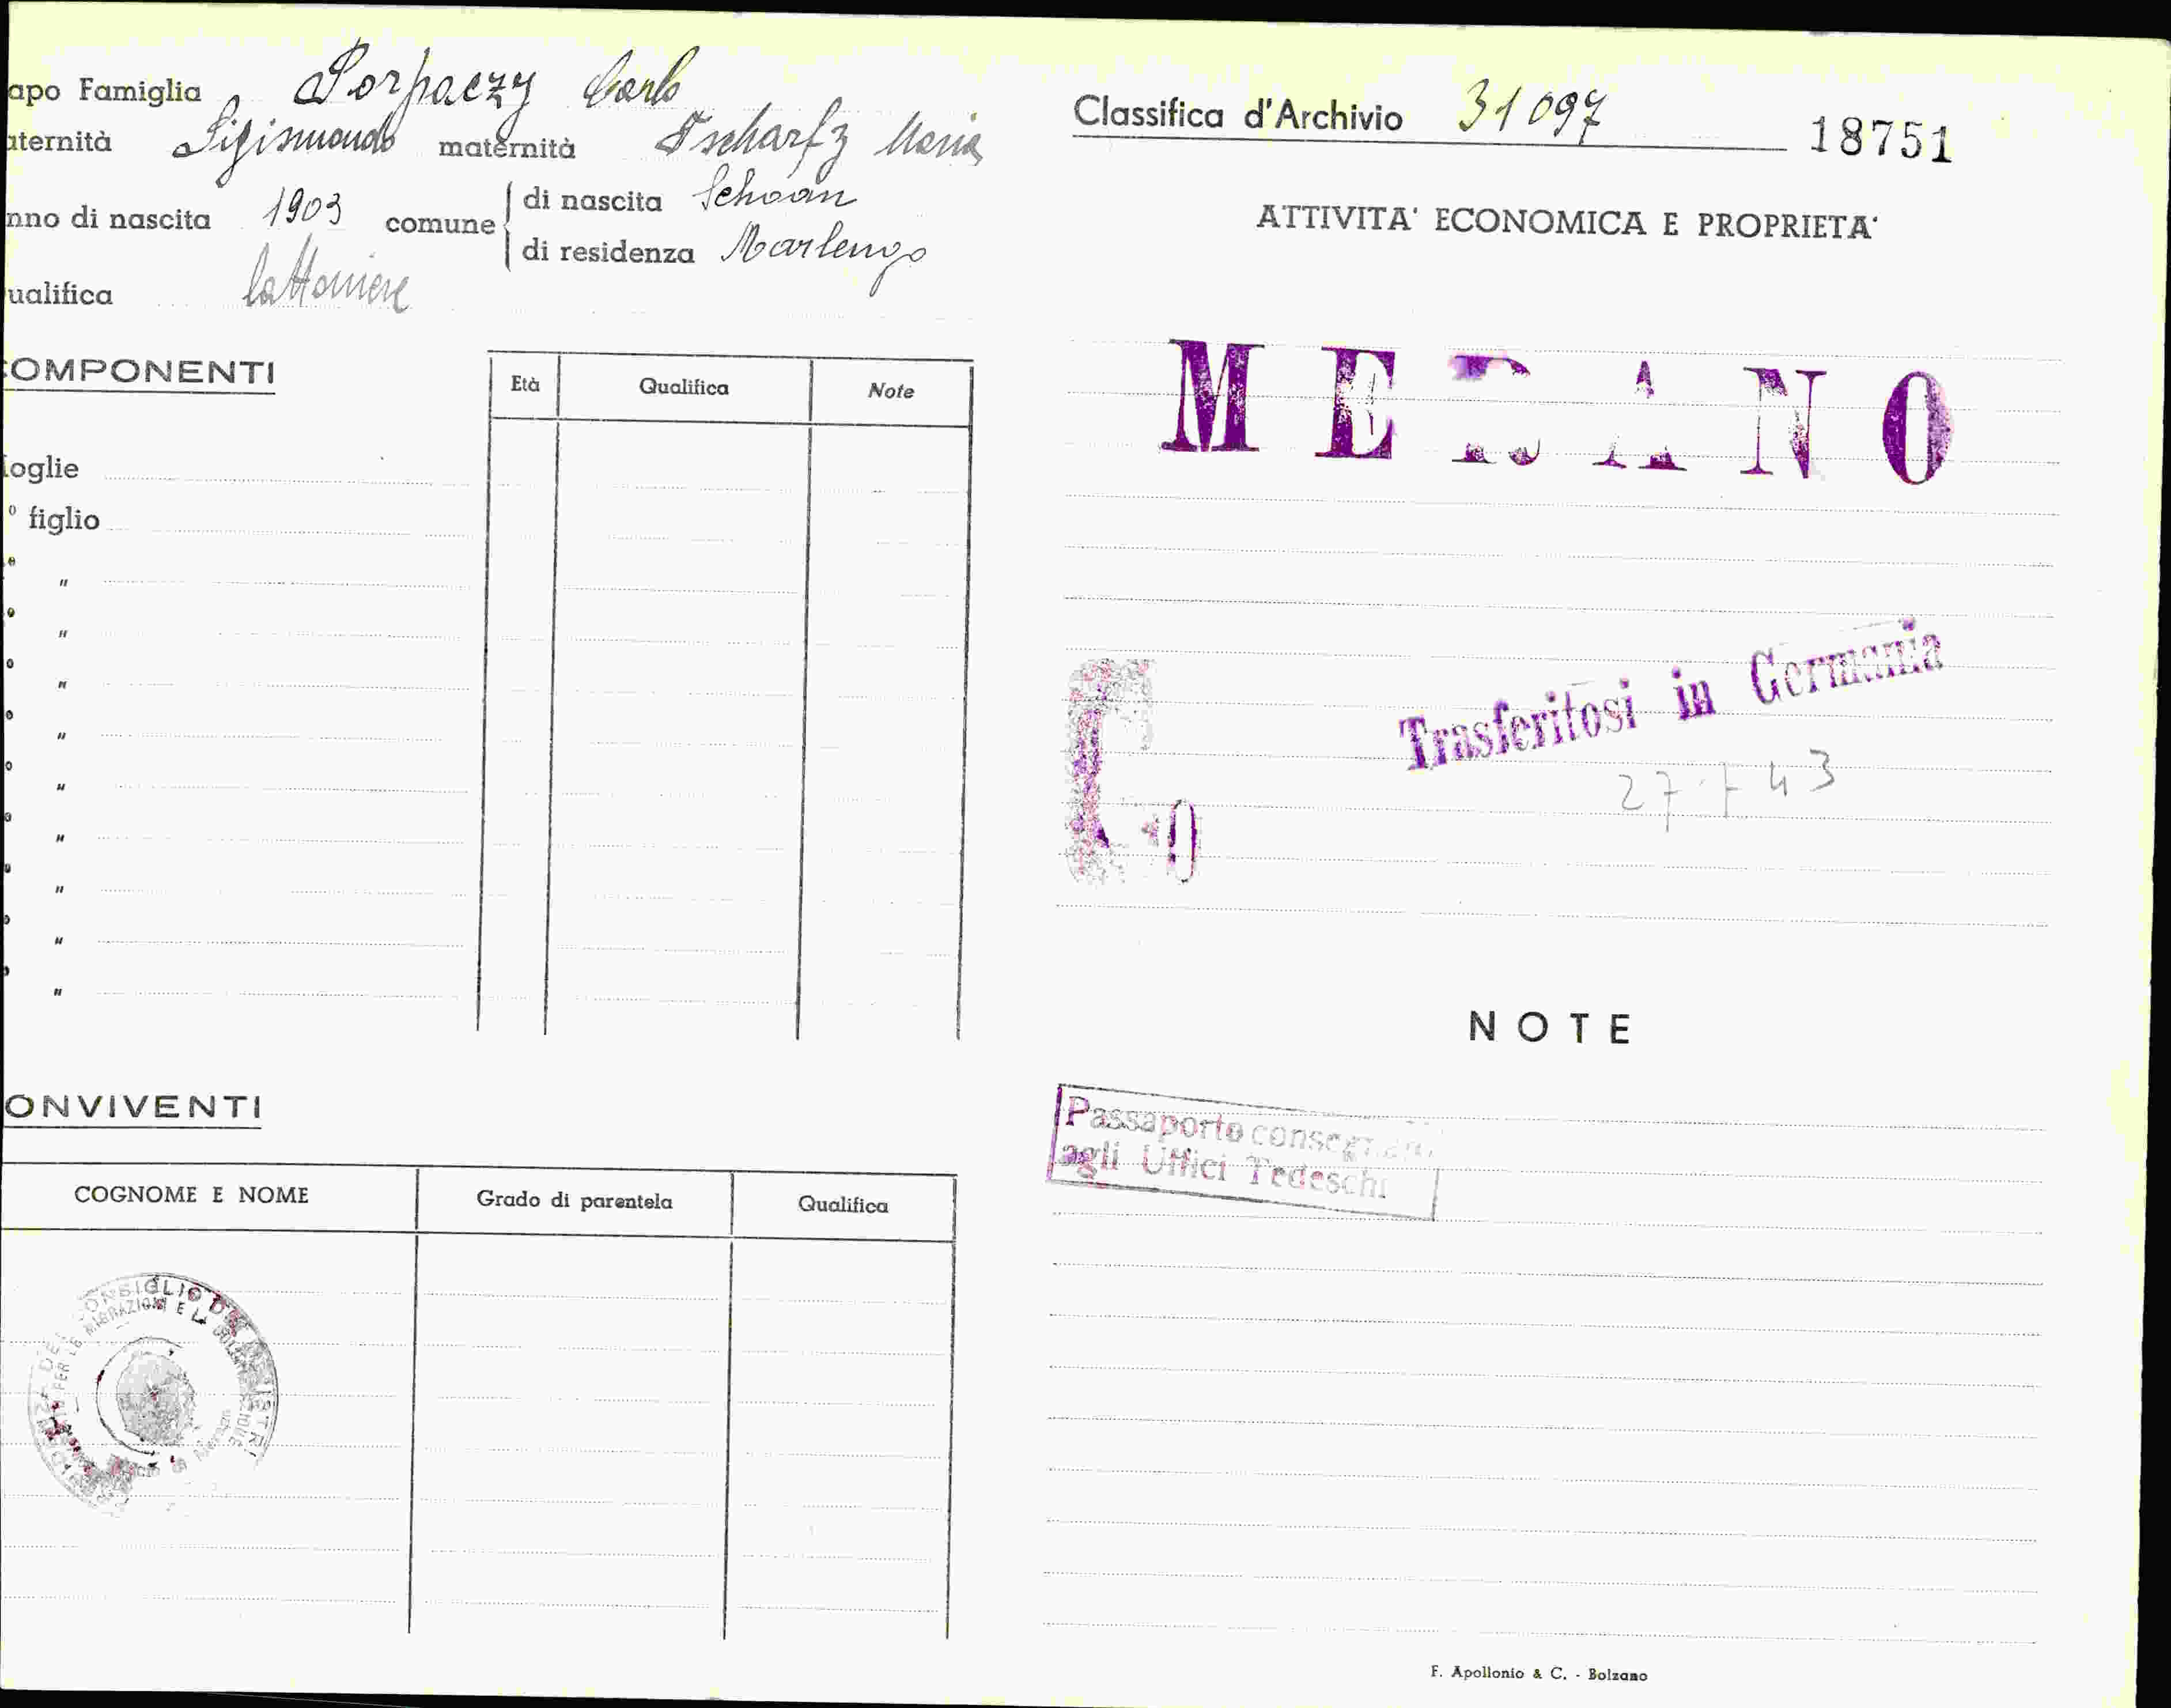 apo Famiglia Porpaczy Carlo
aternità Sigismondo maternità Tscharfz Maria
nno di nascita 1903 comune di nascita Schoan
di residenza Marlengo
ualifica lattoniere
COMPONENTI
Età Qualifica Note
oglie
° figlio
"
"
"
"
"
"
"
"
"
ONVIVENTI
COGNOME E NOME Grado di parentela Qualifica
CONSIGLIO DEI MINISTRI
PER LE MIGRAZIONI E LA
Classifica d'Archivio 31097
18751
ATTIVITA' ECONOMICA E PROPRIETA'
MERANO
Trasferitosi in Germania
27 7 43
NOTE
Passaporto consegnato
agli Uffici Tedeschi
F. Apollonio & C. - Bolzano